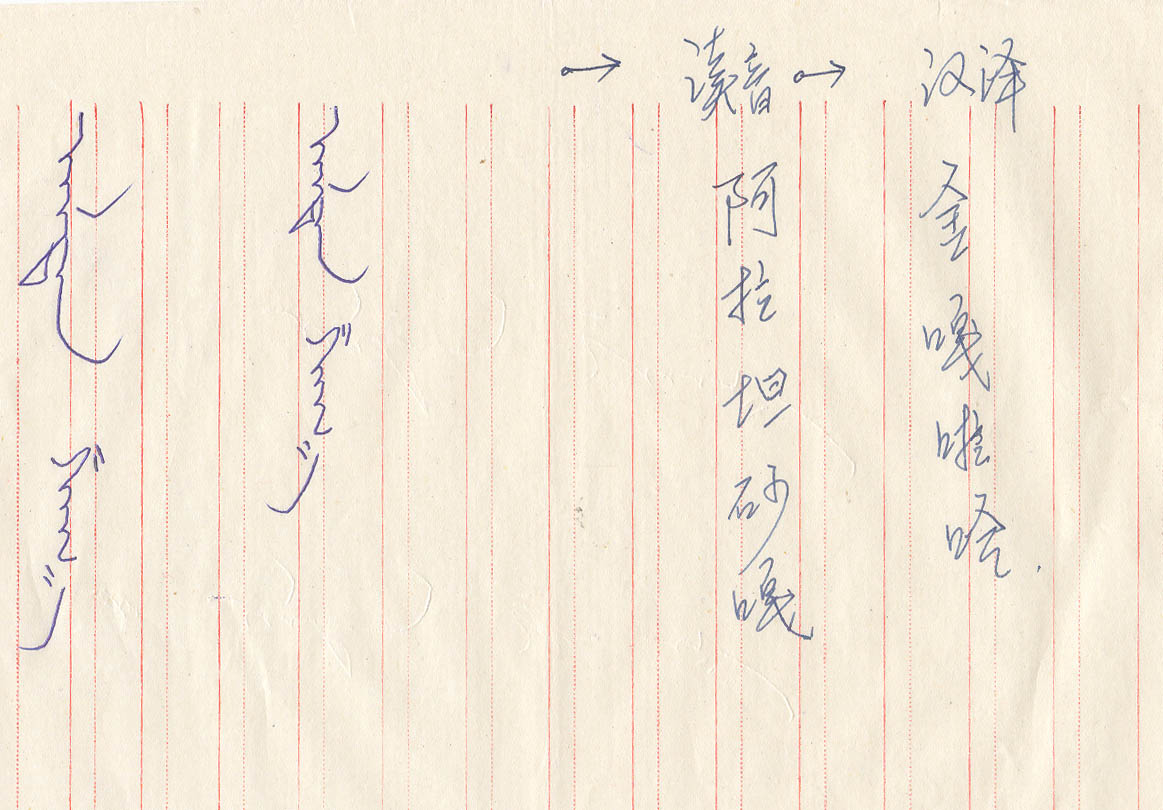 ᠠᠯᠲᠠᠨ
ᠠᠯᠲᠠᠨ
→ 读音 → 汉译
阿拉坦砂嘎
金嘎啦哈.